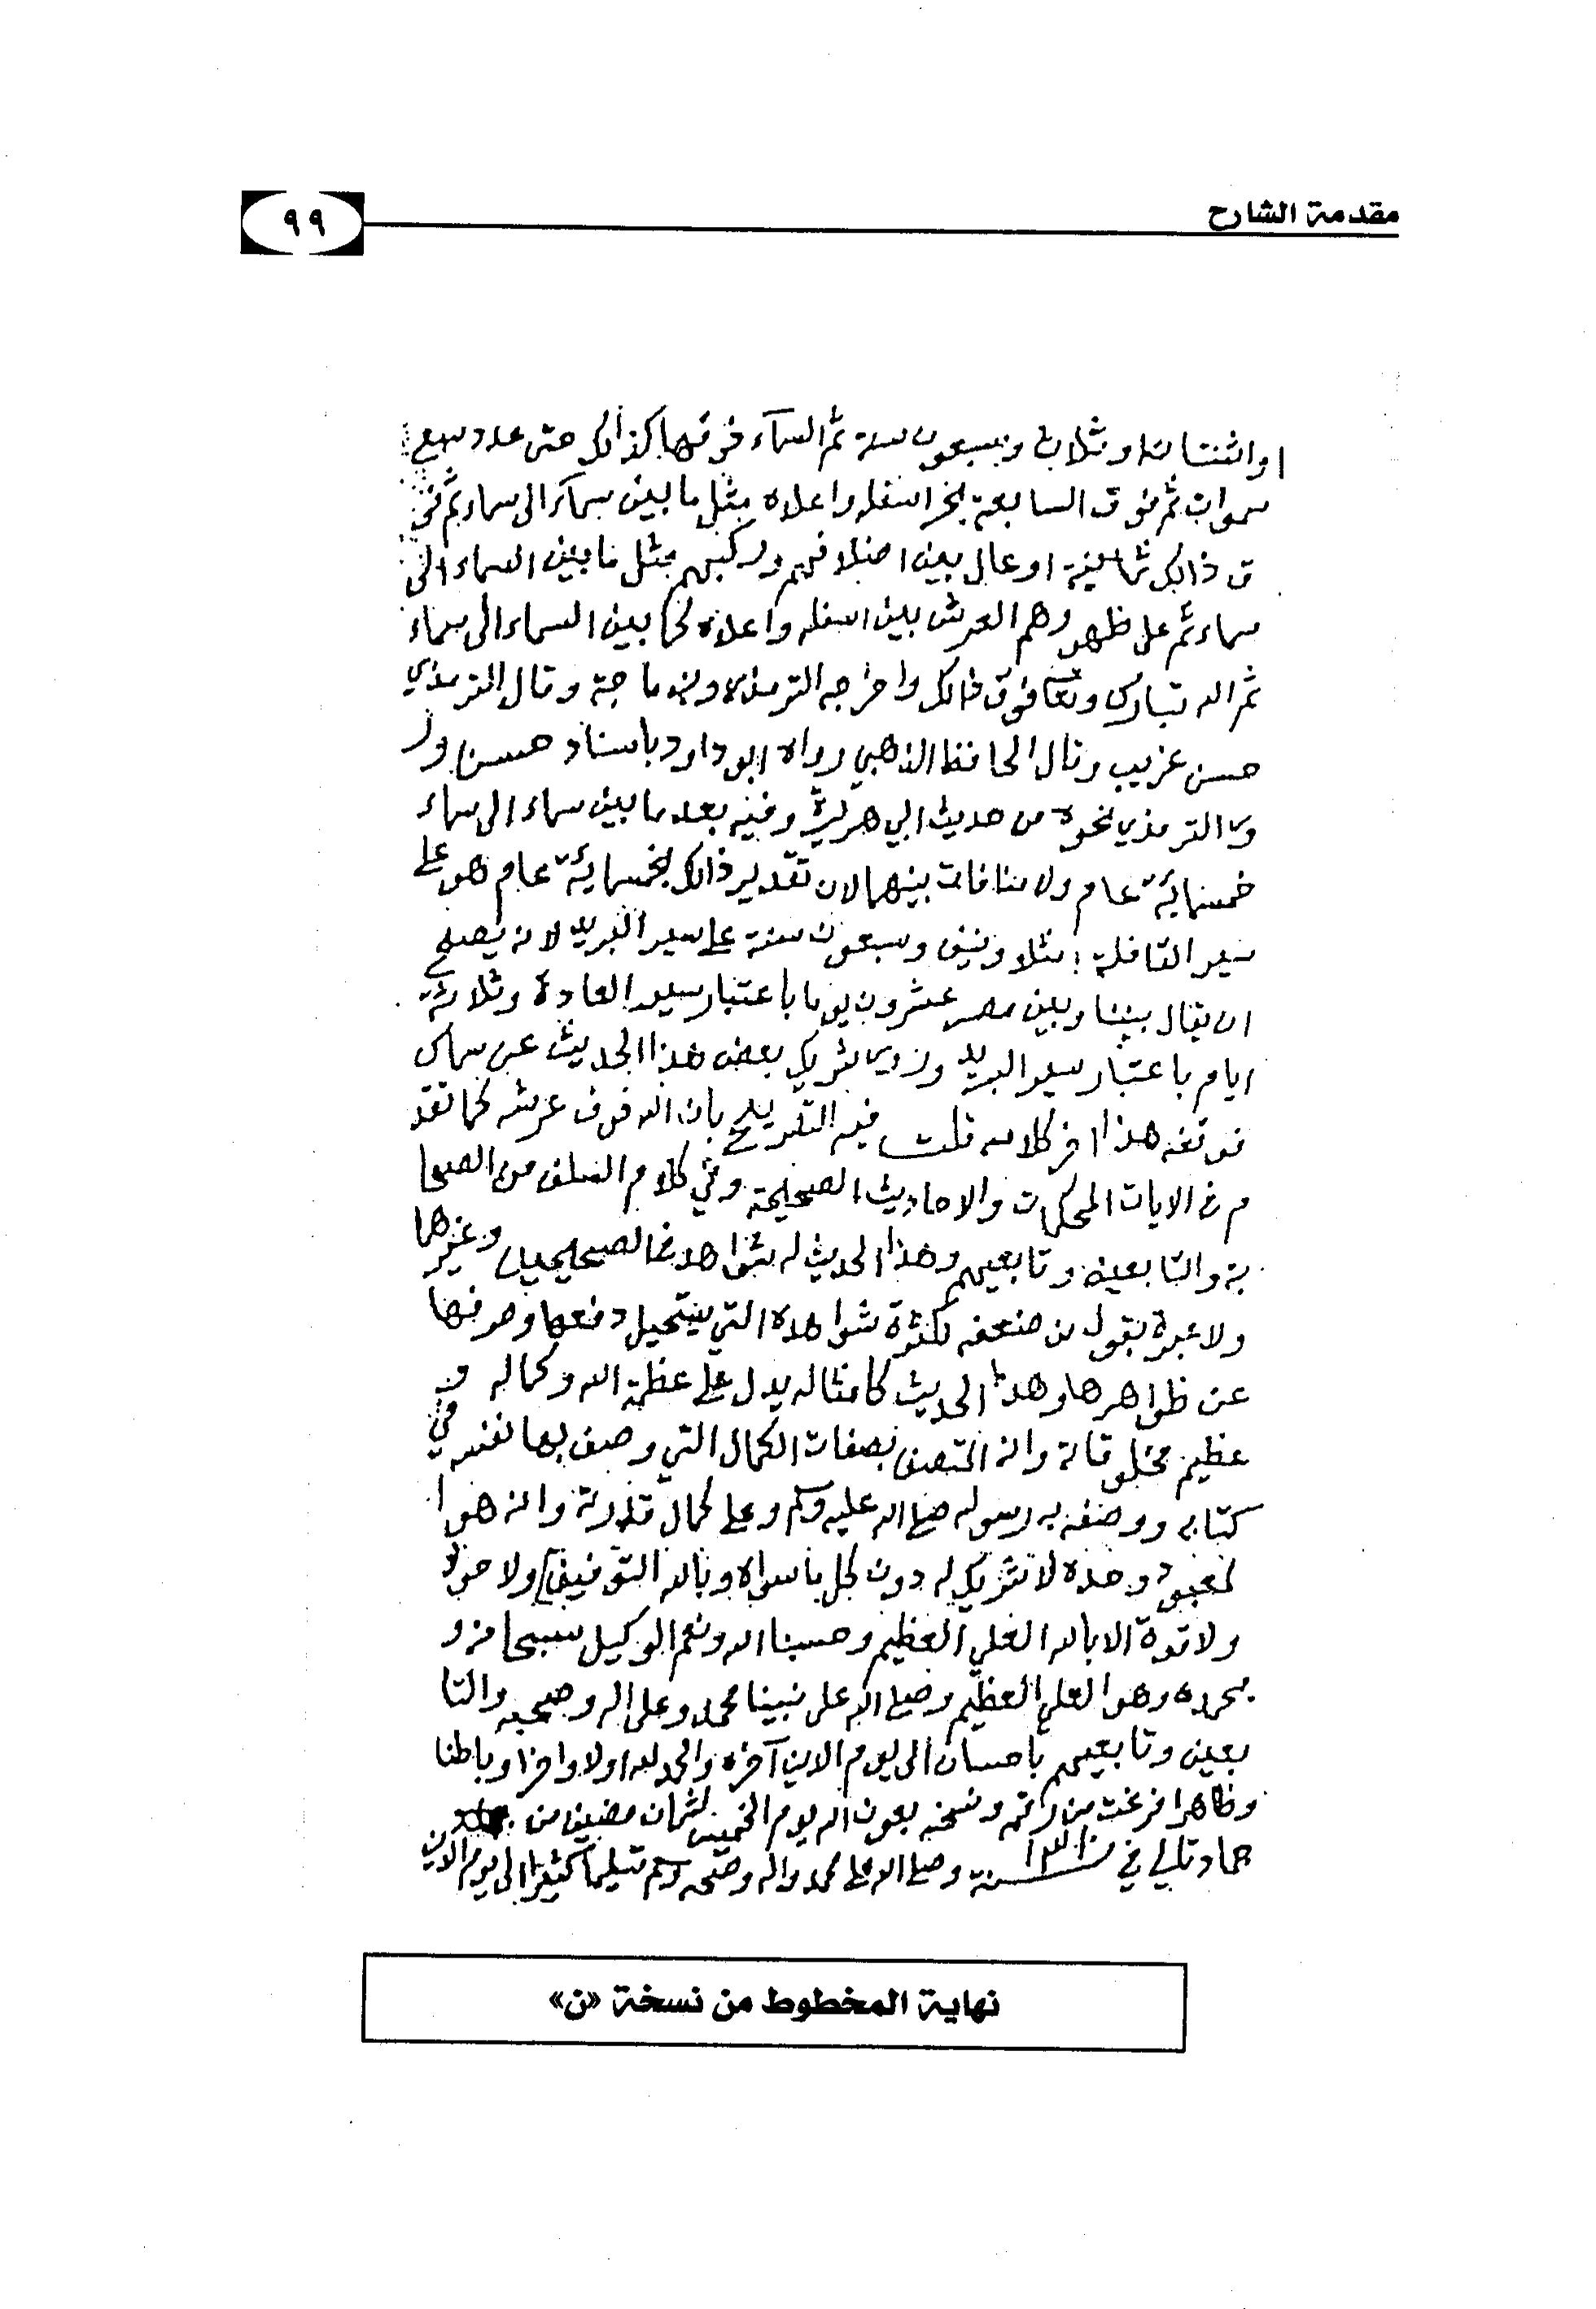 مقدمة الشارح
٩٩
او اثنتان او ثلاث وسبعون سنة ثم السمآء فوقها كذالك حتى عدد سبع
سموات ثم فوق السابعة بحر اسفله واعلاه مثل ما بين سماء الى سماء ثم فو
ق ذالك ثمانية اوعال بين اضلافهم وركبهم مثل ما بين السماء الى
سماء ثم على ظهورهم العرش بين اسفله واعلاه كما بين السماء الى سماء
ثم الله تبارك وتعا فوق ذالك واخرجه الترمذي وابن ماجة وقال الترمذي
حسن غريب وقال الحافظ الذهبي رواه ابو داود باسناد حسن ور
وى الترمذي نحوه من حديث ابي هريرة وفيه بعد ما بين سماء الى سماء
خمسمائة عام ولا منافات بينهما لان تقدير ذالك بخمسمائة عام هو على
سير القافلة مثلا ونيف وسبعون سنة على سير البريد لانه يصلح
ان يقال بيننا وبين مصر عشرون يوما باعتبار سير العادة وثلاثة
ايام باعتبار سير البريد وروى شريك بعض هذا الحديث عن سماك
فوقفه هذا اخر كلامه قلت فيه التصريح بان الله فوق عرشه كما تقد
م في الايات المحكمات والاحاديث الصحيحة وفي كلام السلف من الصحا
بة والتابعين وتابعيهم وهذا الحديث له شواهد في الصحيحين وغيرهما
ولا عبرة بقول من ضعفه لكثرة شواهده التي يستحيل دفعها وصرفها
عن ظواهرها وهذا الحديث كامثاله يدل على عظمة الله وكماله و
عظيم مخلوقاته وانه المتصف بصفات الكمال التي وصف بها نفسه في
كتابه ووصفه به رسوله صلى الله عليه وسلم وعلى كمال قدرته وانه هو ا
لمعبود وحده لا شريك له دون كل ما سواه وبالله التوفيق ولا حول
ولا قوة الا بالله العلي العظيم وحسبنا الله ونعم الوكيل سبحانه و
بحمده وهو العلي العظيم وصلى الله على نبينا محمد وعلى اله وصحبه والتا
بعين وتابعيهم باحسان الى يوم الدين آخره والحمد لله اولا واخرا وباطنا
وظاهرا فرغت من رقمه ونسخه بعون الله يوم الخميس لثمان مضين من
جماد تالي في سنة وصلى الله على محمد واله وصحبه وسلم تسليما كثيرا الى يوم الدين
نهاية المخطوط من نسخة «ن»